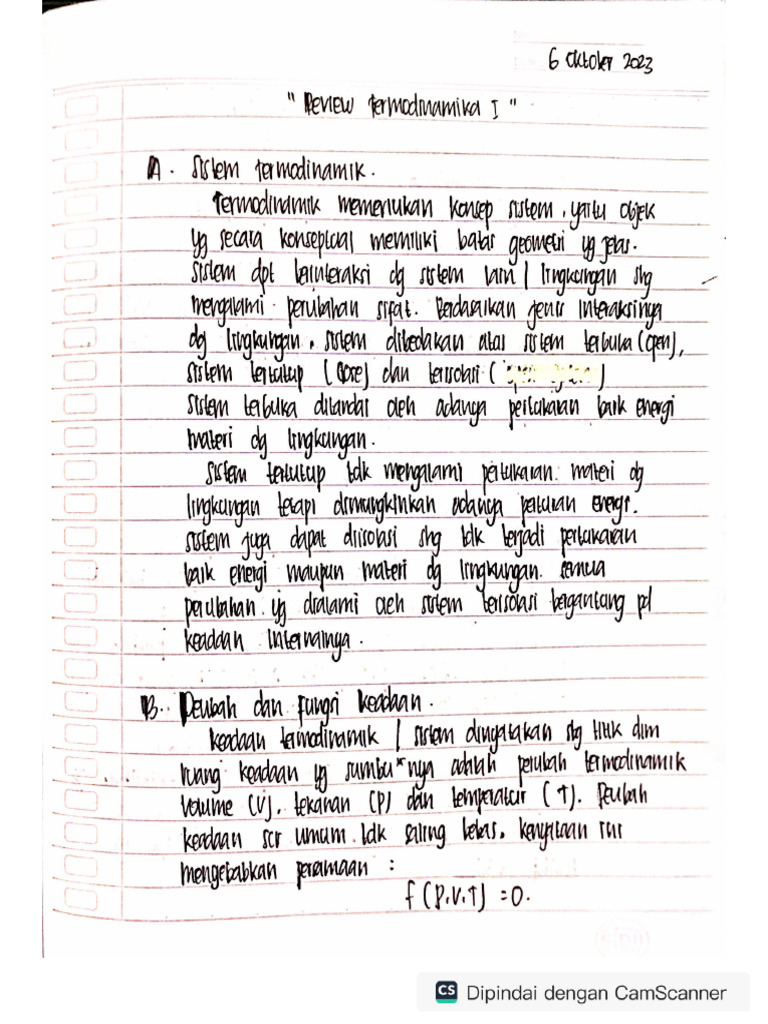 6 Oktober 2023
"Review Termodinamika I"
A. Sistem termodinamik.
Termodinamik memerlukan konsep sistem, yaitu objek
yg secara konseptual memiliki batas geometri yg jelas.
Sistem dpt berinteraksi dg sistem lain / lingkungan shg
mengalami perubahan sifat. Berdasarkan jenis interaksinya
dg lingkungan, sistem dibedakan atas sistem terbuka (open),
sistem tertutup (close) dan terisolasi ( )
Sistem terbuka ditandai oleh adanya pertukaran baik energi
materi dg lingkungan.
Sistem tertutup tdk mengalami pertukaran materi dg
lingkungan tetapi dimungkinkan adanya energi.
sistem juga dapat diisolasi shg tdk terjadi pertukaran
baik energi maupun materi dg lingkungan. semua
perubahan yg dialami oleh sistem terisolasi bergantung pd
keadaan internalnya.
B. Peubah dan Fungsi Keadaan.
Keadaan termodinamik / sistem dinyatakan sbg titik dlm
ruang keadaan yg sumbu"nya adalah peubah termodinamik
Volume (V), tekanan (P) dan temperatur (T). Peubah
keadaan scr umum tdk saling bebas, kenyataan ini
mengebabkan persamaan :
f (P,V,T) = 0.
CS Dipindai dengan CamScanner